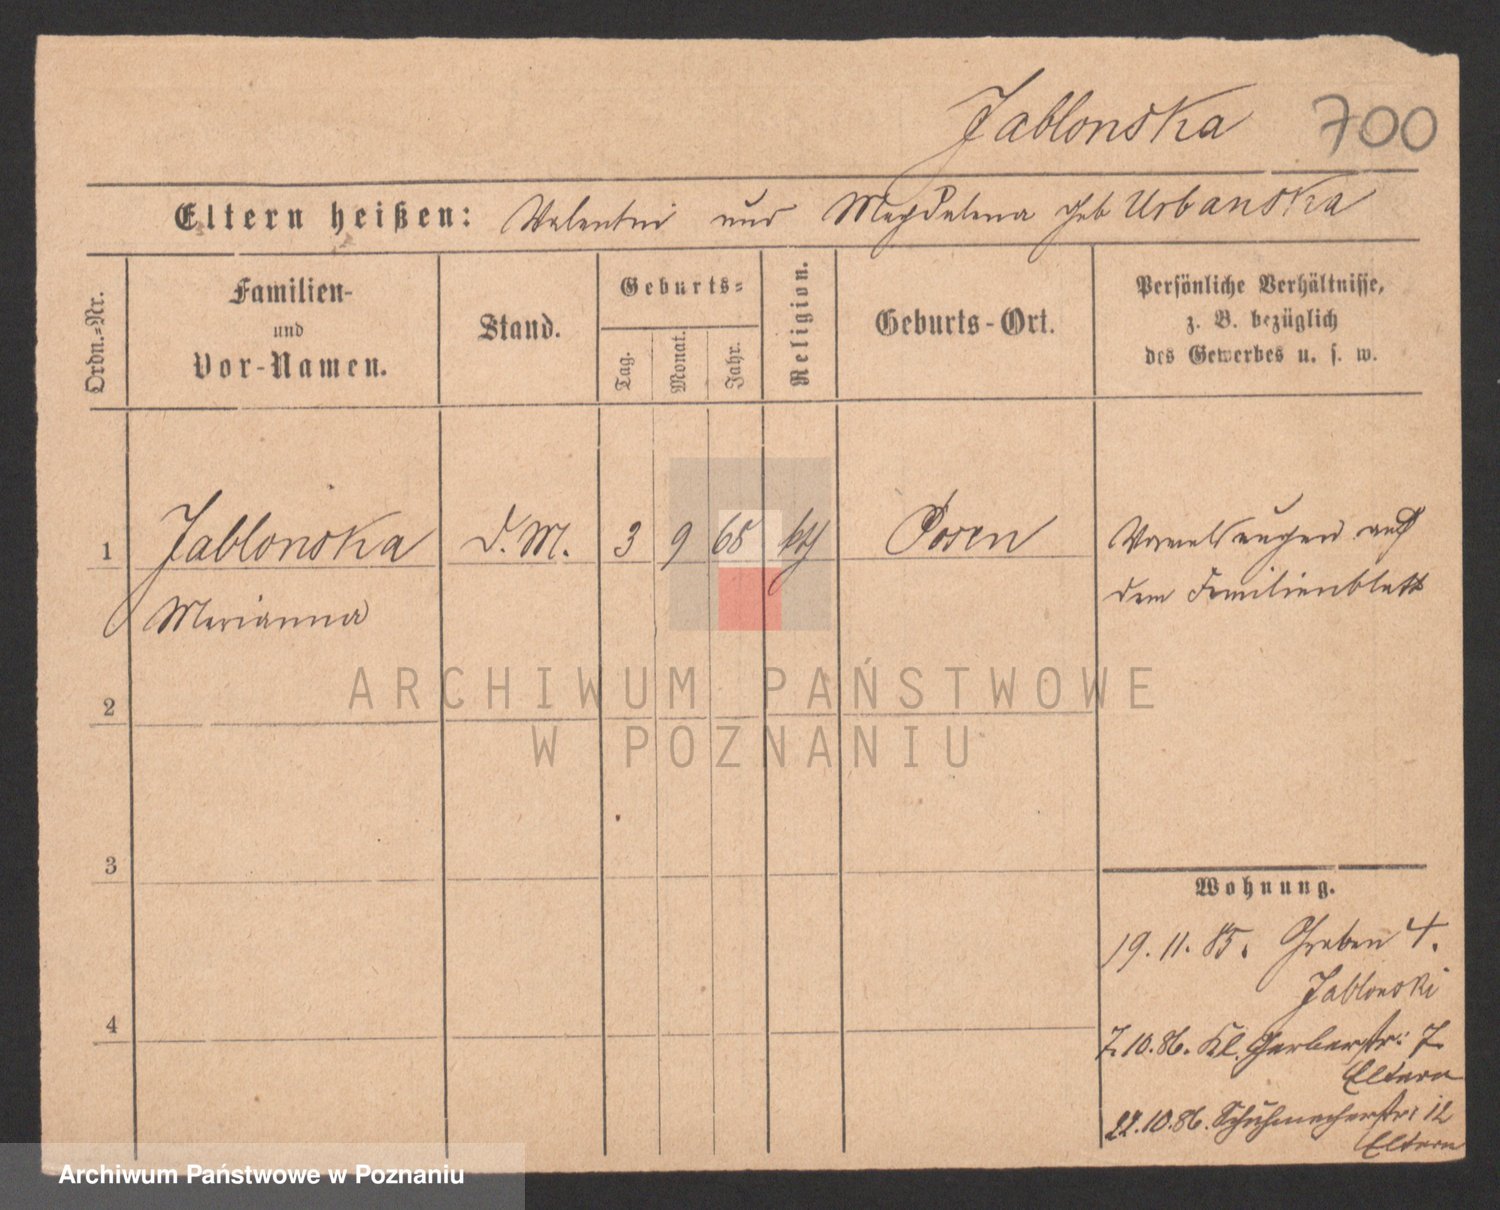 Jablonska 700
Eltern heißen: Valentin und Magdalena geb Urbanska
Ordn.-Nr.
Familien-
und
Vor-Namen.
Stand.
Geburts-
Tag.
Monat.
Jahr.
Religion.
Geburts-Ort.
Persönliche Verhältnisse,
z. B. bezüglich
des Gewerbes u. s. w.
1 Jablonska d. M. 3 9 68 kth Posen
Marianna
Bemerkungen auf
dem Familienblatt
2
3
4
Wohnung.
19. 11. 85. Graben 4.
Jablonski
7.10.86. Kl. Gerberstr: 7.
Eltern
22.10.86. Schuhmacherstr: 12
Eltern
ARCHIWUM PAŃSTWOWE
W POZNANIU
Archiwum Państwowe w Poznaniu